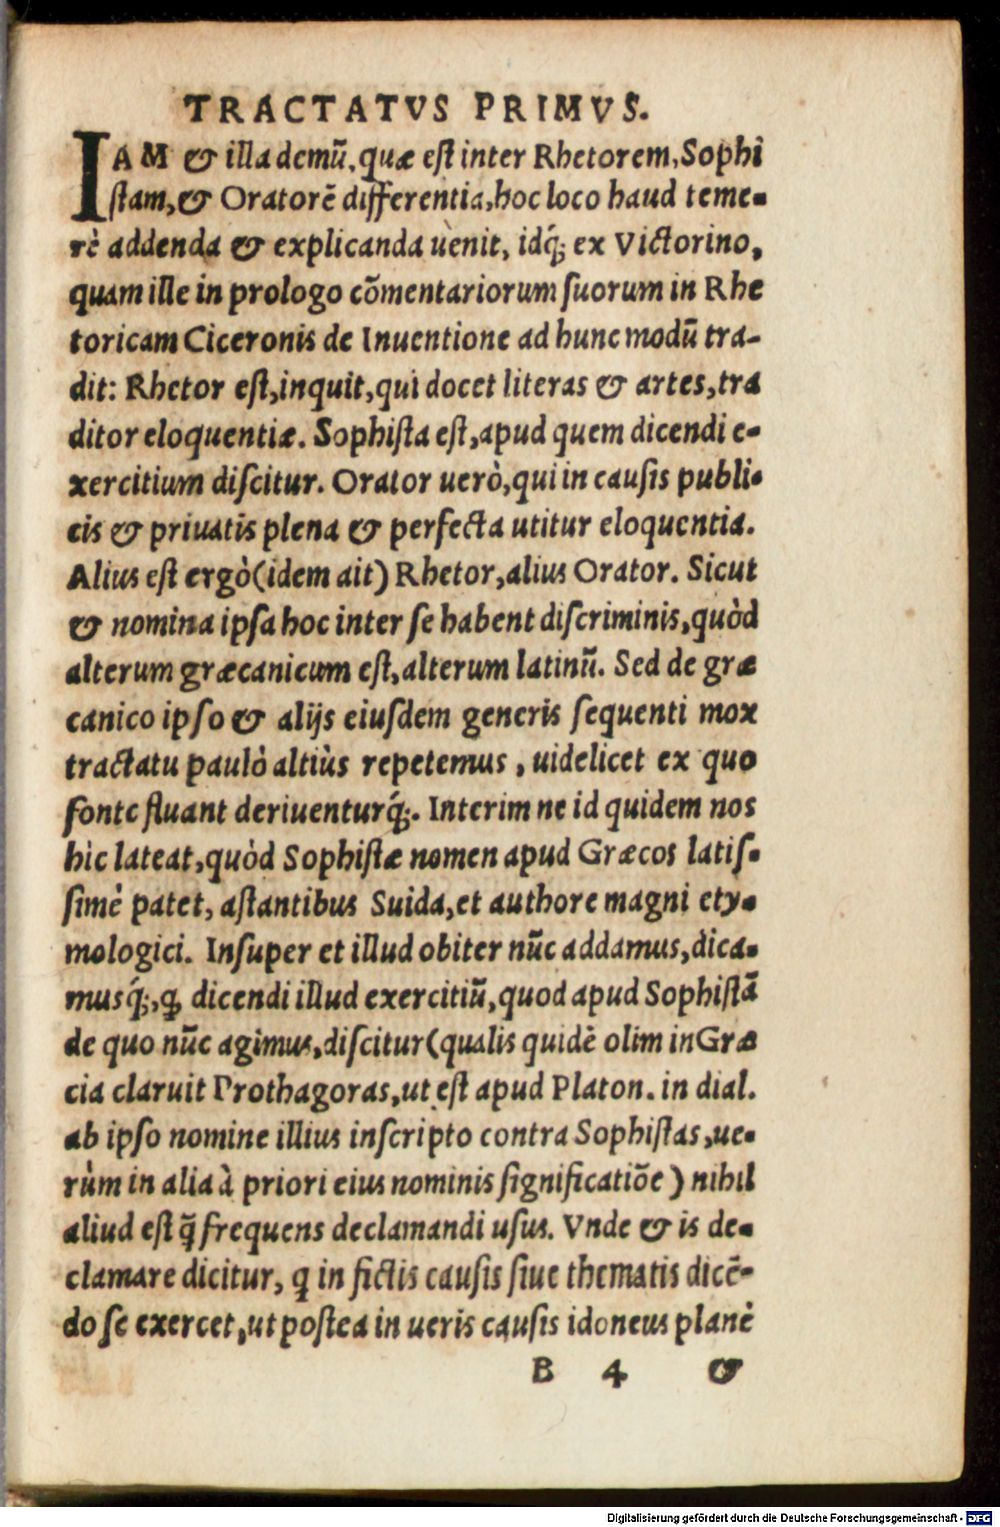 TRACTATVS PRIMVS.
IAM & illa demũ, quæ est inter Rhetorem, Sophi
stam, & Oratorẽ differentia, hoc loco haud teme-
rè addenda & explicanda uenit, idq́; ex Victorino,
quam ille in prologo cõmentariorum suorum in Rhe
toricam Ciceronis de Inuentione ad hunc modũ tra-
dit: Rhetor est, inquit, qui docet literas & artes, tra
ditor eloquentiæ. Sophista est, apud quem dicendi e-
xercitium discitur. Orator uerò, qui in causis publi-
cis & priuatis plena & perfecta utitur eloquentia.
Alius est ergò (idem ait) Rhetor, alius Orator. Sicut
& nomina ipsa hoc inter se habent discriminis, quòd
alterum græcanicum est, alterum latinũ. Sed de græ
canico ipso & alijs eiusdem generis sequenti mox
tractatu paulò altiùs repetemus, uidelicet ex quo
fonte fluant deriuenturq́;. Interim ne id quidem nos
hìc lateat, quòd Sophistæ nomen apud Græcos latis-
simè patet, astantibus Suida, et authore magni ety-
mologici. Insuper et illud obiter nũc addamus, dica-
musq́;, ꝙ dicendi illud exercitiũ, quod apud Sophistã
de quo nũc agimus, discitur (qualis quidẽ olim in Græ
cia claruit Prothagoras, ut est apud Platon. in dial.
ab ipso nomine illius inscripto contra Sophistas, ue-
rùm in alia à priori eius nominis significatiõe) nihil
aliud est q̃ frequens declamandi usus. Vnde & is de-
clamare dicitur, q in fictis causis siue thematis dicẽ-
do se exercet, ut postea in ueris causis idoneus planè
B 4 &
Digitalisierung gefördert durch die Deutsche Forschungsgemeinschaft - DFG